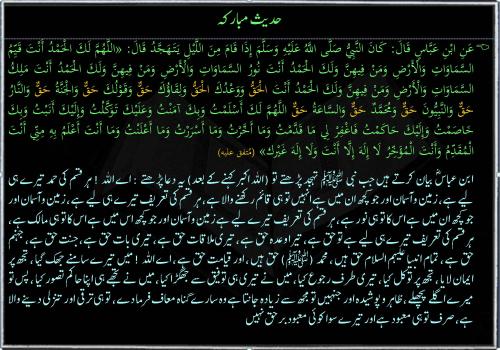 حدیث مبارکہ
عَنِ ابْنِ عَبَّاسٍ قَالَ: كَانَ النَّبِيُّ صَلَّى اللَّهُ عَلَيْهِ وَسَلَّمَ إِذَا قَامَ مِنَ اللَّيْلِ يَتَهَجَّدُ قَالَ: «اللَّهُمَّ لَكَ الْحَمْدُ أَنْتَ قَيِّمُ
السَّمَاوَاتِ وَالْأَرْضِ وَمَنْ فِيهِنَّ وَلَكَ الْحَمْدُ أَنْتَ نُورُ السَّمَاوَاتِ وَالْأَرْضِ وَمَنْ فِيهِنَّ وَلَكَ الْحَمْدُ أَنْتَ مَلِكُ
السَّمَاوَاتِ وَالْأَرْضِ وَمَنْ فِيهِنَّ وَلَكَ الْحَمْدُ أَنْتَ الْحَقُّ وَوَعْدُكَ الْحَقُّ وَلِقَاؤُكَ حَقٌّ وَقَوْلُكَ حَقٌّ وَالْجَنَّةُ حَقٌّ وَالنَّارُ
حَقٌّ وَالنَّبِيُّونَ حَقٌّ وَمُحَمَّدٌ حَقٌّ وَالسَّاعَةُ حَقٌّ اللَّهُمَّ لَكَ أَسْلَمْتُ وَبِكَ آمَنْتُ وَعَلَيْكَ تَوَكَّلْتُ وَإِلَيْكَ أَنَبْتُ وَبِكَ
خَاصَمْتُ وَإِلَيْكَ حَاكَمْتُ فَاغْفِرْ لِي مَا قَدَّمْتُ وَمَا أَخَّرْتُ وَمَا أَسْرَرْتُ وَمَا أَعْلَنْتُ وَمَا أَنْتَ أَعْلَمُ بِهِ مِنِّي أَنْتَ
الْمُقَدِّمُ وَأَنْتَ الْمُؤَخِّرُ لَا إِلَهَ إِلَّا أَنْتَ وَلَا إِلَهَ غَيْرُكَ» (مُتَّفق عَلَيْهِ)
ابن عباسؓ بیان کرتے ہیں جب نبی ﷺ تہجد پڑھتے تو (اللہ اکبر کہنے کے بعد) یہ دعا پڑھتے: اے اللہ! ہر قسم کی حمد تیرے ہی
لیے ہے، زمین و آسمان اور جو کچھ ان میں ہے انہیں تو ہی قائم رکھنے والا ہے، ہر قسم کی تعریف تیرے ہی لیے ہے، زمین و آسمان اور
جو کچھ ان میں ہے اس کا تو ہی نور ہے، ہر قسم کی تعریف تیرے لیے ہے زمین و آسمان اور جو کچھ اس میں ہے اس کا تو ہی مالک ہے،
ہر قسم کی تعریف تیرے ہی لیے ہے تو حق ہے، تیرا وعدہ حق ہے، تیری ملاقات حق ہے، تیری بات حق ہے، جنت حق ہے، جہنم
حق ہے، تمام انبیا علیہم السلام حق ہیں، محمد (ﷺ) حق ہیں، اور قیامت حق ہے، اے اللہ! میں تیرے سامنے جھک گیا، تجھ پر
ایمان لایا، تجھ پر توکل کیا، تیری طرف رجوع کیا، میں نے تیری ہی توفیق سے جھگڑا کیا، میں نے تجھے ہی اپنا حاکم تصور کیا، پس تو
میرے اگلے پچھلے، ظاہر و پوشیدہ اور جنہیں تو مجھ سے زیادہ جانتا ہے وہ سارے گناہ معاف فرما دے، تو ہی ترقی اور تنزلی دینے والا
ہے، صرف تو ہی معبود ہے اور تیرے سوا کوئی معبود برحق نہیں